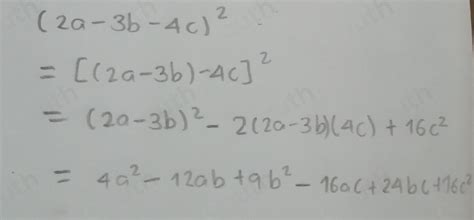 (2a-3b-4c)²
= [(2a-3b)-4c]²
= (2a-3b)² - 2(2a-3b)(4c) + 16c²
= 4a² - 12ab + 9b² - 16ac + 24bc + 16c²